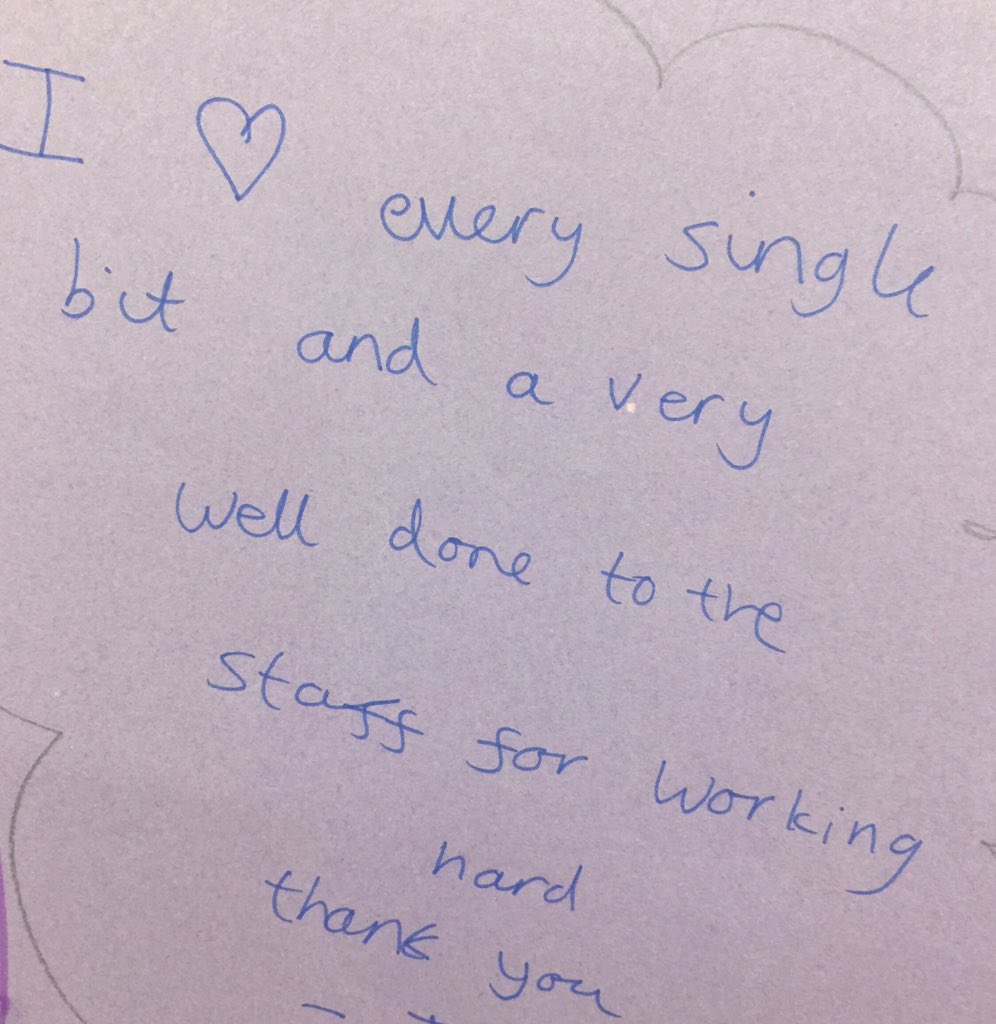 I ♡ every single
bit and a very
well done to the
staff for working
hard
thank you